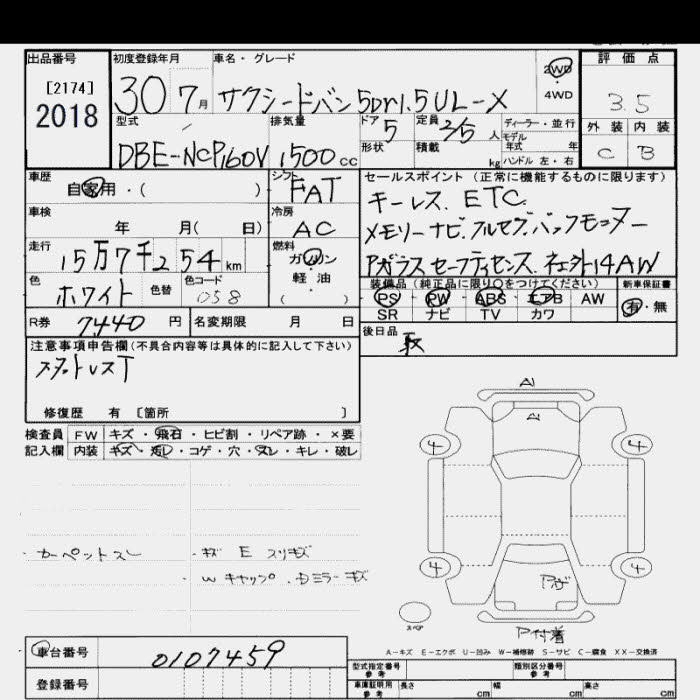 出品番号 初度登録年月 車名・グレード 2WD 4WD 評価点
[2174]
2018 30 7月 サクシードバン 5Dr1.5UL-X 3.5
型式 排気量 ドア 5 定員 2/5人 ディーラー・並行 外装 内装
モデル年式 年
DBE-NCP160V 1500cc 形状 積載 kg ハンドル 左・右 C B
車歴 自家用・( ) シフト FAT セールスポイント (正常に機能するものに限ります)
キーレス. ETC.
車検 年 月( 日) 冷房 AC
メモリーナビ.フルセグ.バックモニター
走行 15万7千254km 燃料 ガソリン・軽油・( )
Pガラス セーフティセンス.社外14AW
色 ホワイト 色替 色コード 058
装備品 (純正品に限り○をつけてください) 新車保証書
PS PW ABS エアB AW 有・無
SR ナビ TV カワ
R券 7440円 名変期限 月 日
後日品 取
注意事項申告欄(不具合内容等は具体的に記入して下さい)
スタットレスT
修復歴 有 [箇所 ]
検査員 FW キズ・飛石・ヒビ割・リペア跡・×要
記入欄 内装 キズ・汚レ・コゲ・穴・スレ・キレ・破レ
・カーペットスレ ・キズ E スリキズ
Wキャップ.Dミラーキズ
A1
A1
4 4
4 4
Pガ
スペア
P付着
A-キズ E-エクボ U-凹み W-補修跡 S-サビ C-腐食 XX-交換済
車台番号 0107459
登録番号
型式指定番号 参考 類別区分番号 参考
車庫証明用 参考 長さ cm 幅 cm 高さ cm